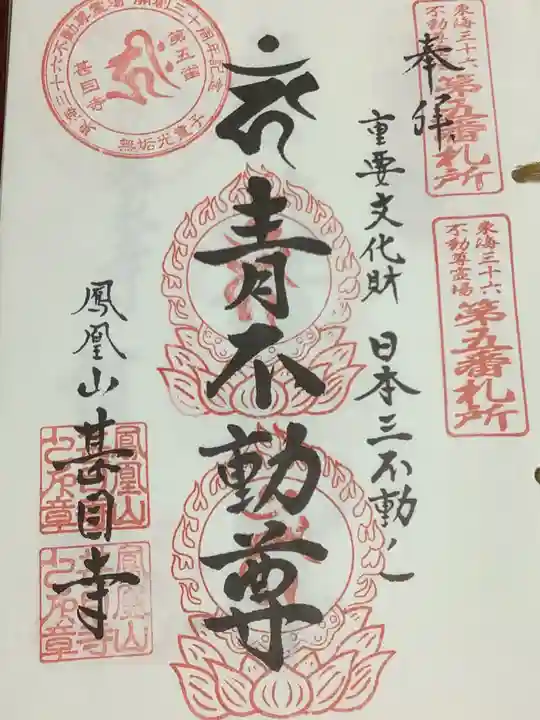 奉拝
重要文化財 日本三不動ノ一
青不動尊
鳳凰山 甚目寺
東海三十六
不動尊霊場
第五番札所
東海三十六
不動尊霊場
第五番札所
東海三十六不動尊霊場 開創三十周年記念
第五番
甚目寺
無垢光童子
鳳凰山
鳳凰山